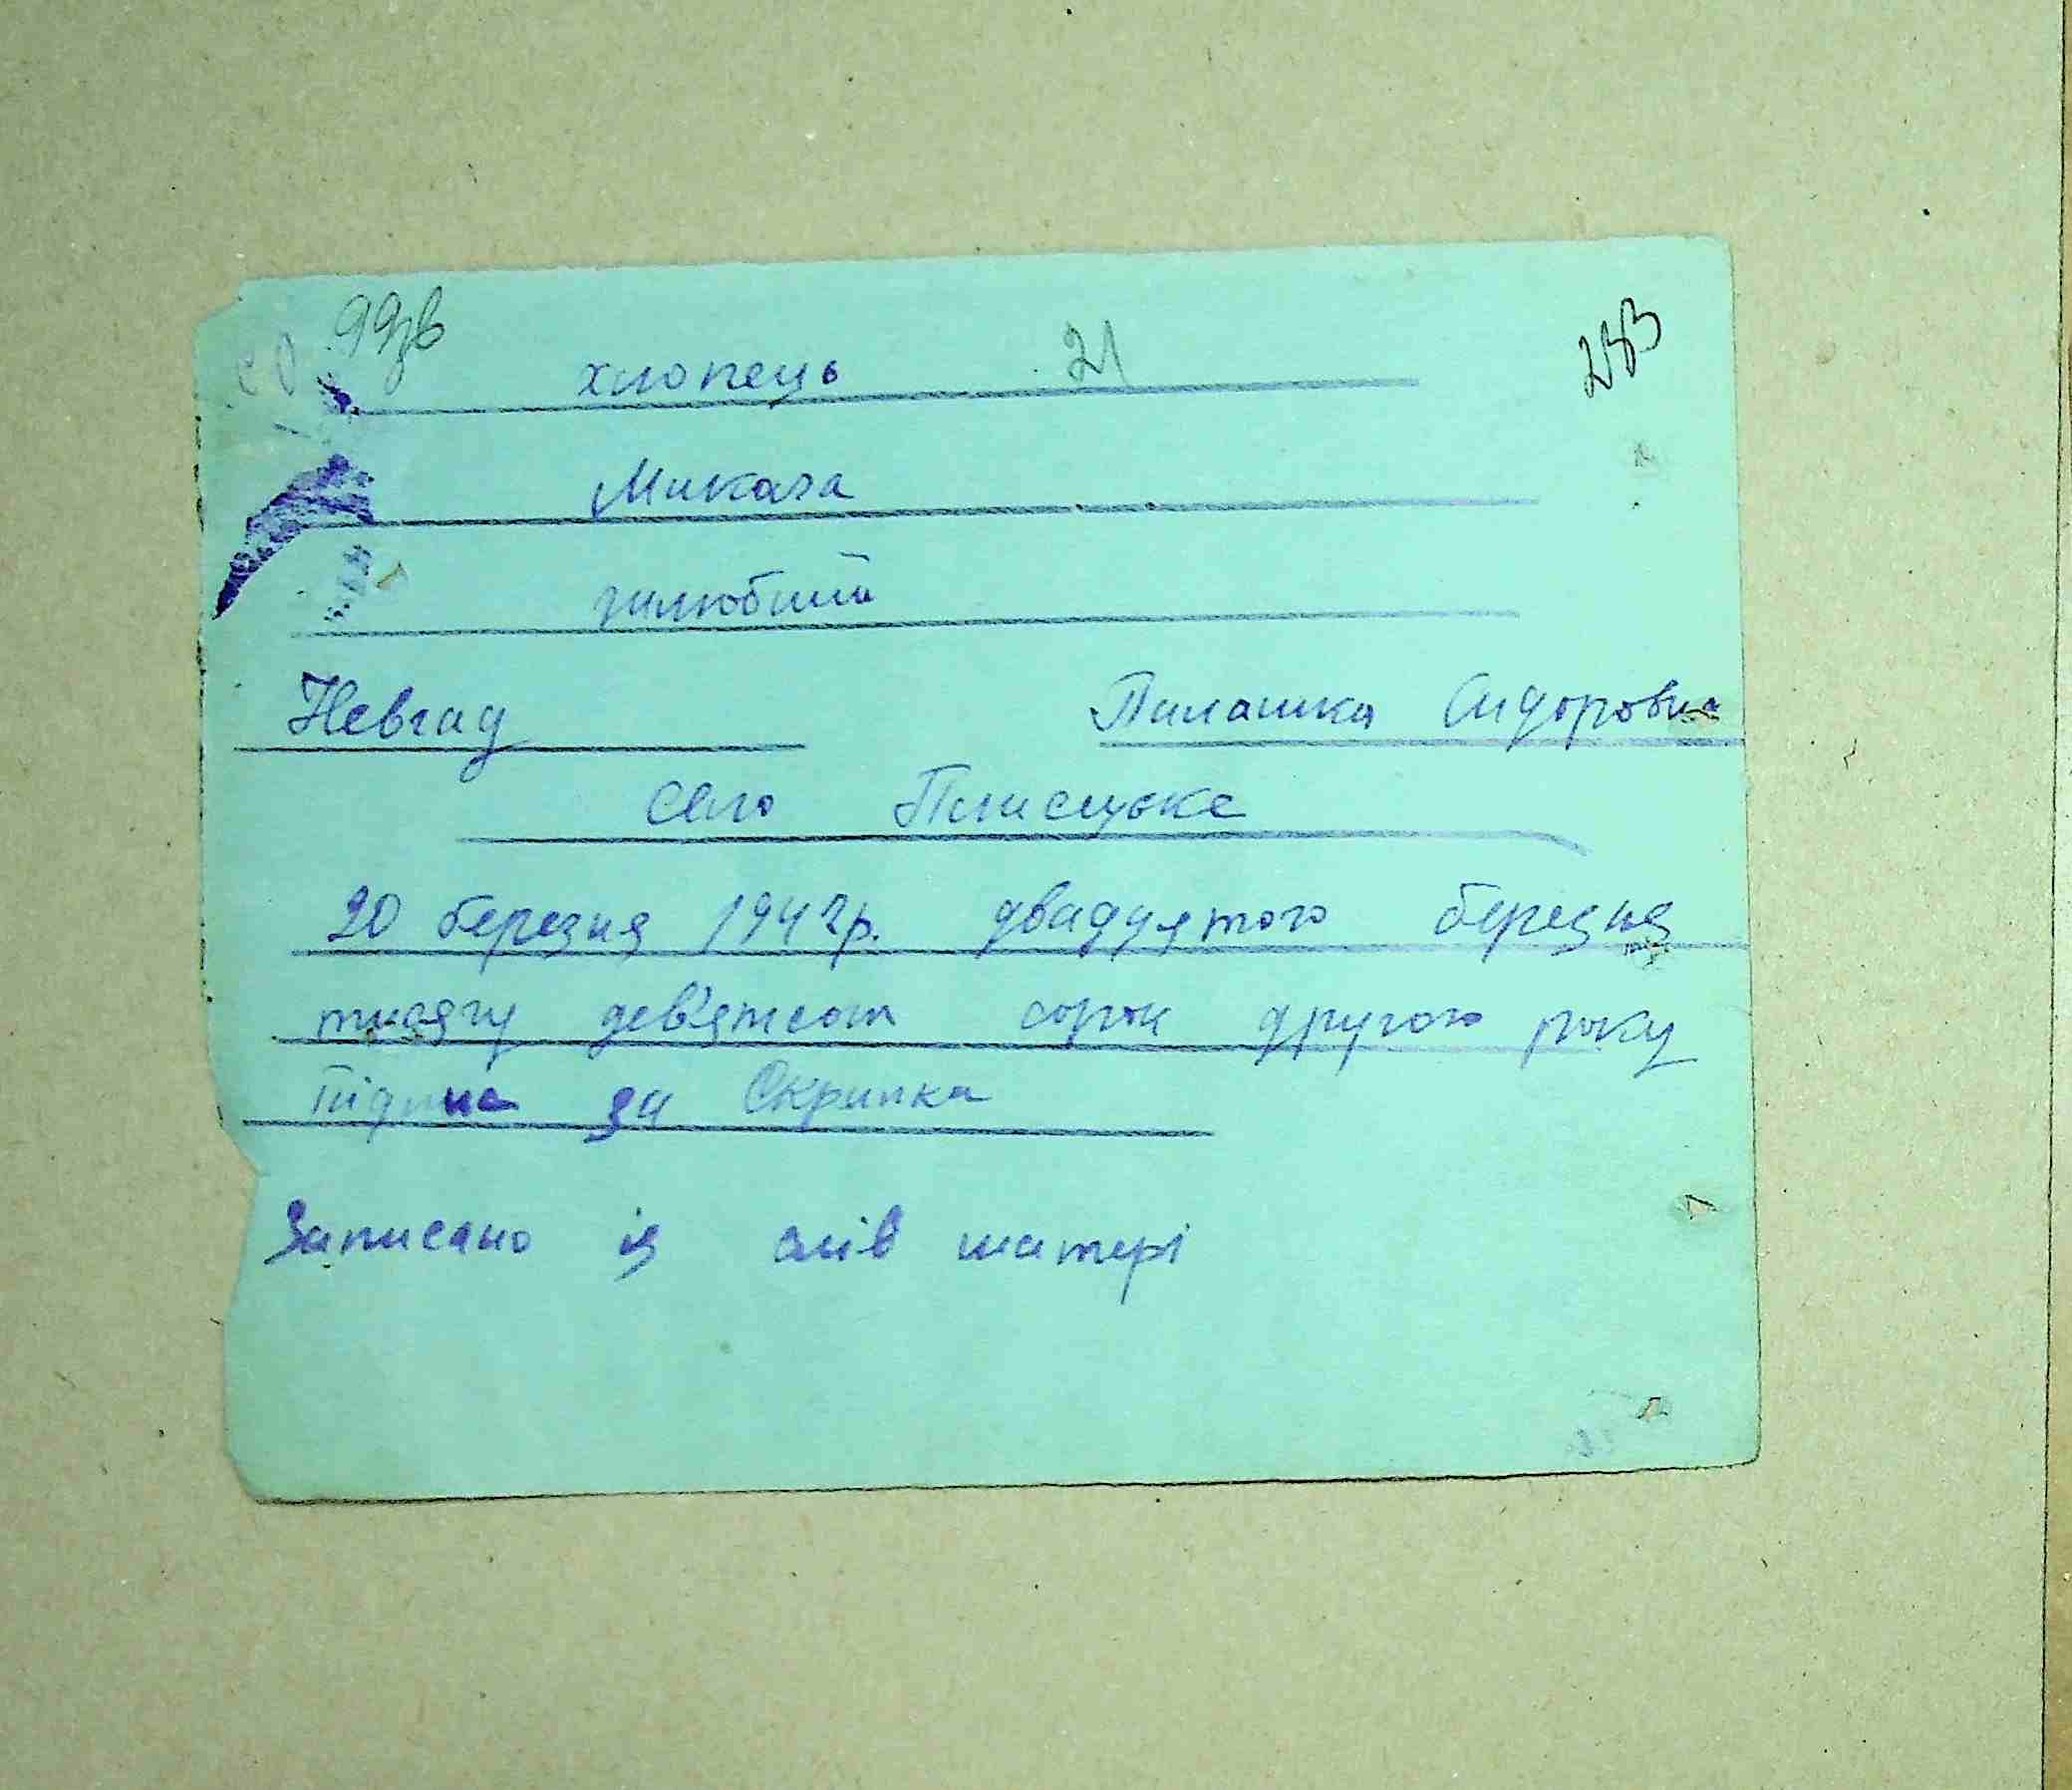 99зв
хлопець 21 283
Микола
шлюбний
Невгад Палашка Сидоровна
село Плисецьке
20 березня 1942р. двадцятого березня
тисячу дев'ятсот сорок другого року
Підпис за Скрипка
Записано із слів матері